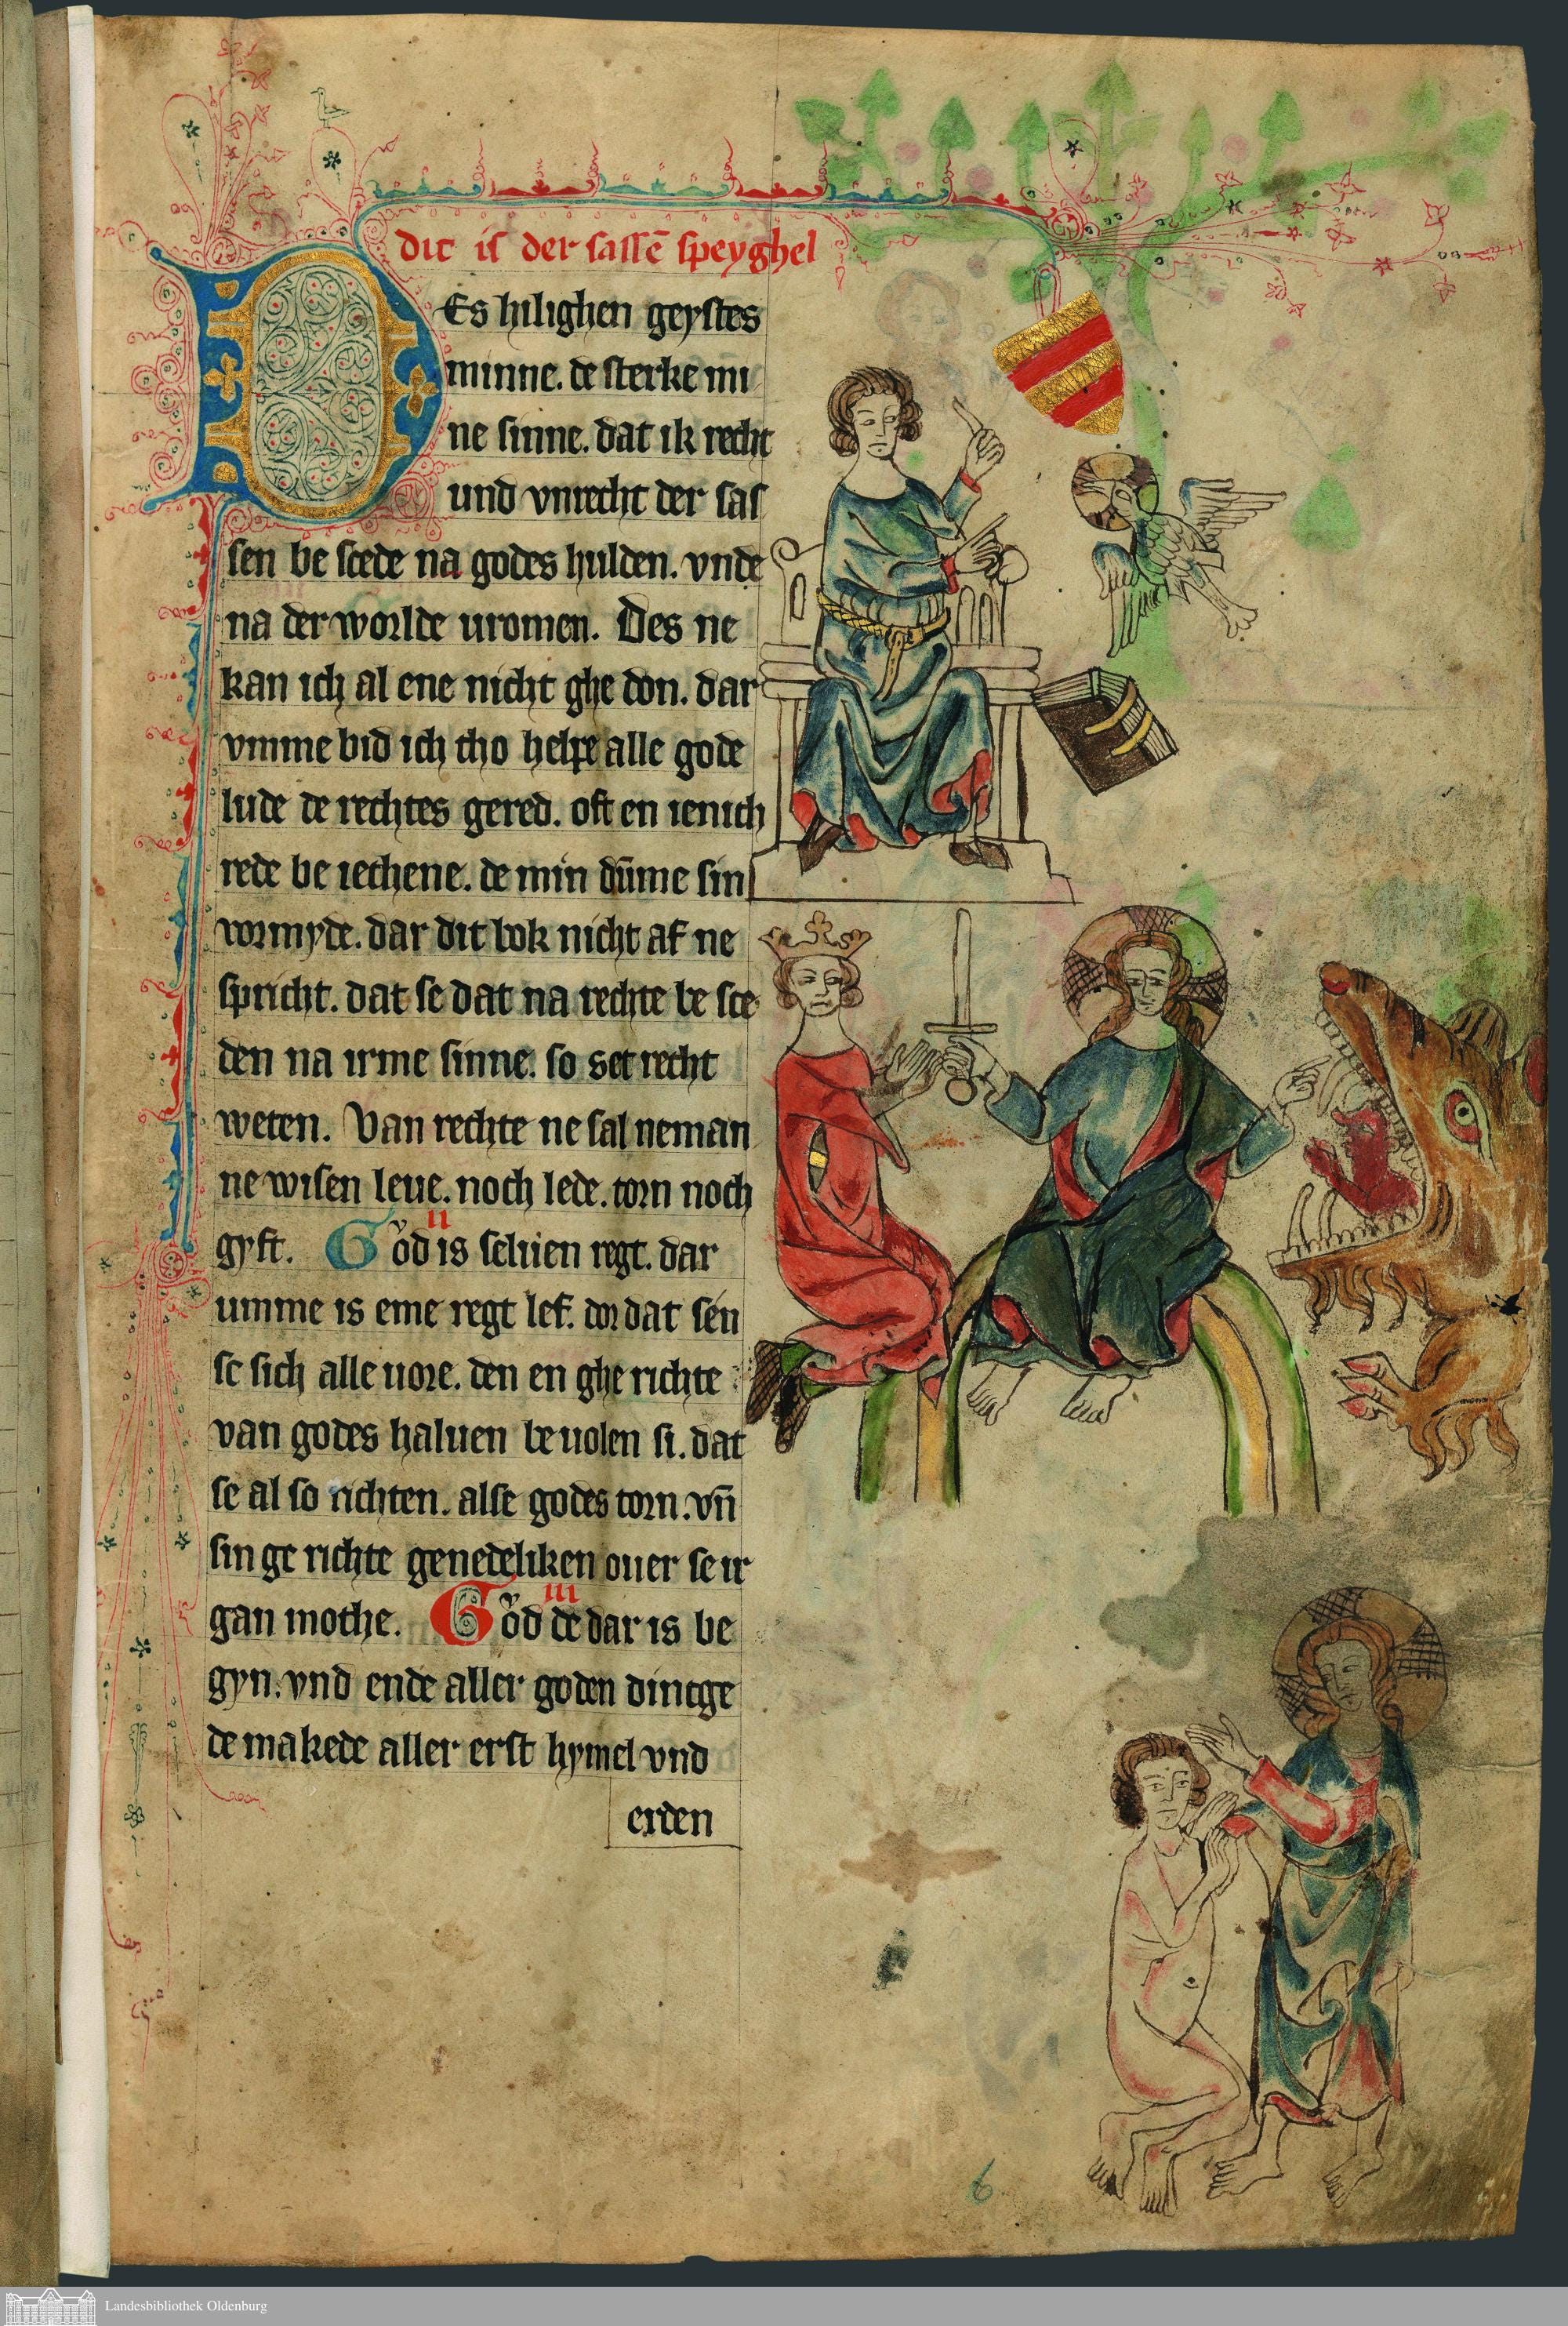 dit is der sassē speyghel
DEs hilighen geystes
minne. de sterke mi
ne sinne. dat ik recht
und vnrecht der sas
sen be scede na godes hulden. vnde
na der worlde uromen. Des ne
kan ich al ene nicht ghe don. dar
vmme bid ich tho helpe alle gode
lude de rechtes gered. oft en ienich
rede be iechene. de min dūme sin
vormyde. dar dit bok nicht af ne
spricht. dat se dat na rechte be sce
den na irme sinne. so set recht
weten. Van rechte ne sal neman
ne wisen leue. noch lede. torn noch
gyft. II Gͮod is seluen regt. dar
umme is eme regt lef. dor dat sen
se sich alle uore. den en ghe richte
van godes haluen be uolen si. dat
se al so richten. alse godes torn. vn̄
sin ge richte genedeliken ouer se ir
gan mothe. III Gͮod de dar is be
gyn. vnd ende aller goden dintge
de makede aller erst hymel vnd
erden
6
Landesbibliothek Oldenburg